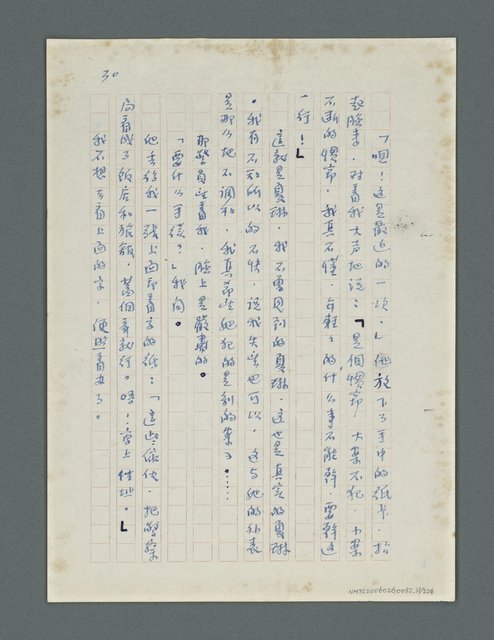 30
「唔！這是最近的一次。」他放下了手中的紙卡，抬
起臉來，對着我大声地說：「是個慣竊，大案不犯，小案
不断的慣竊，我真不懂，年輕輕的什么事不能幹，要幹這
一行！」
這就是夏琳，我不要見到的夏琳，這也是真实的夏琳
。我有不
所以的不快，說我失望也可以，這与她的外表
是那么地不調和，我真希望她犯的是别的案子……
那警員望着我，臉上是嚴肅的。
「要什么手續？」我問。
他丟給我一張上面印着字的紙：「這些傢伙，把警察
局看成了飯店和旅館，蓋個章就行。唔！寫上性别。」
我不想去看上面的字，便照着办了。
NMTL20060260032,31/224